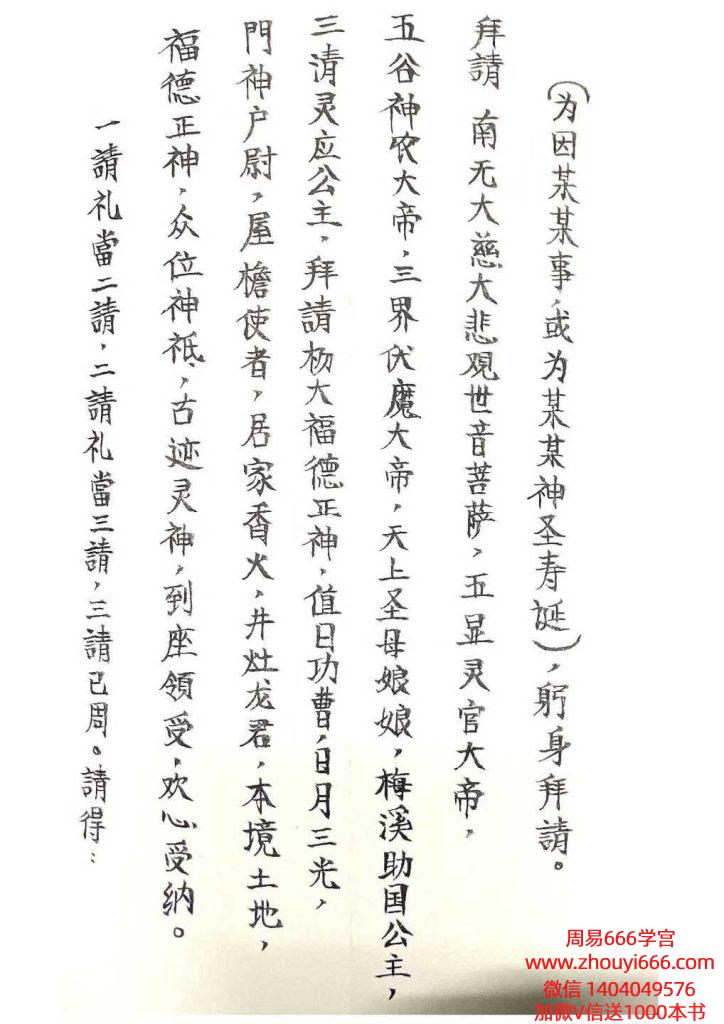 （为因某某事，或为某某神圣寿诞），躬身拜請。
拜請 南无大慈大悲观世音菩萨，五显灵官大帝，
五谷神农大帝，三界伏魔大帝，天上圣母娘娘，梅溪助国公主，
三清灵应公主，拜請杨大福德正神，值日功曹，日月三光，
門神户尉，屋檐使者，居家香火，井灶龙君，本境土地，
福德正神，众位神祗，古迹灵神，到座領受，欢心受納。
一請礼當二請，二請礼當三請，三請已周。請得：
周易666学宫
www.zhouyi666.com
微信 1404049576
加微V信送1000本书